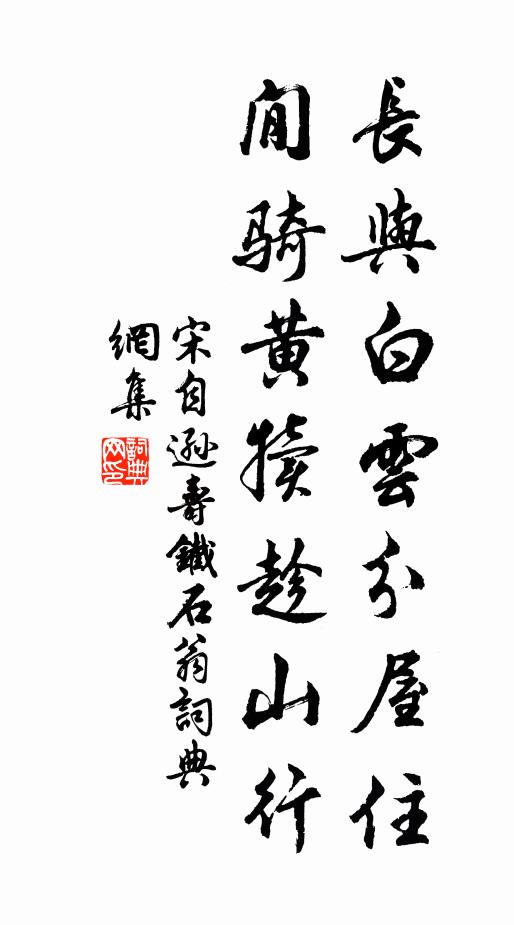 長與白雲分屋住
閒騎黃犢趁山行
宋自遜壽鐵石翁詞典
網集
詞典
网印